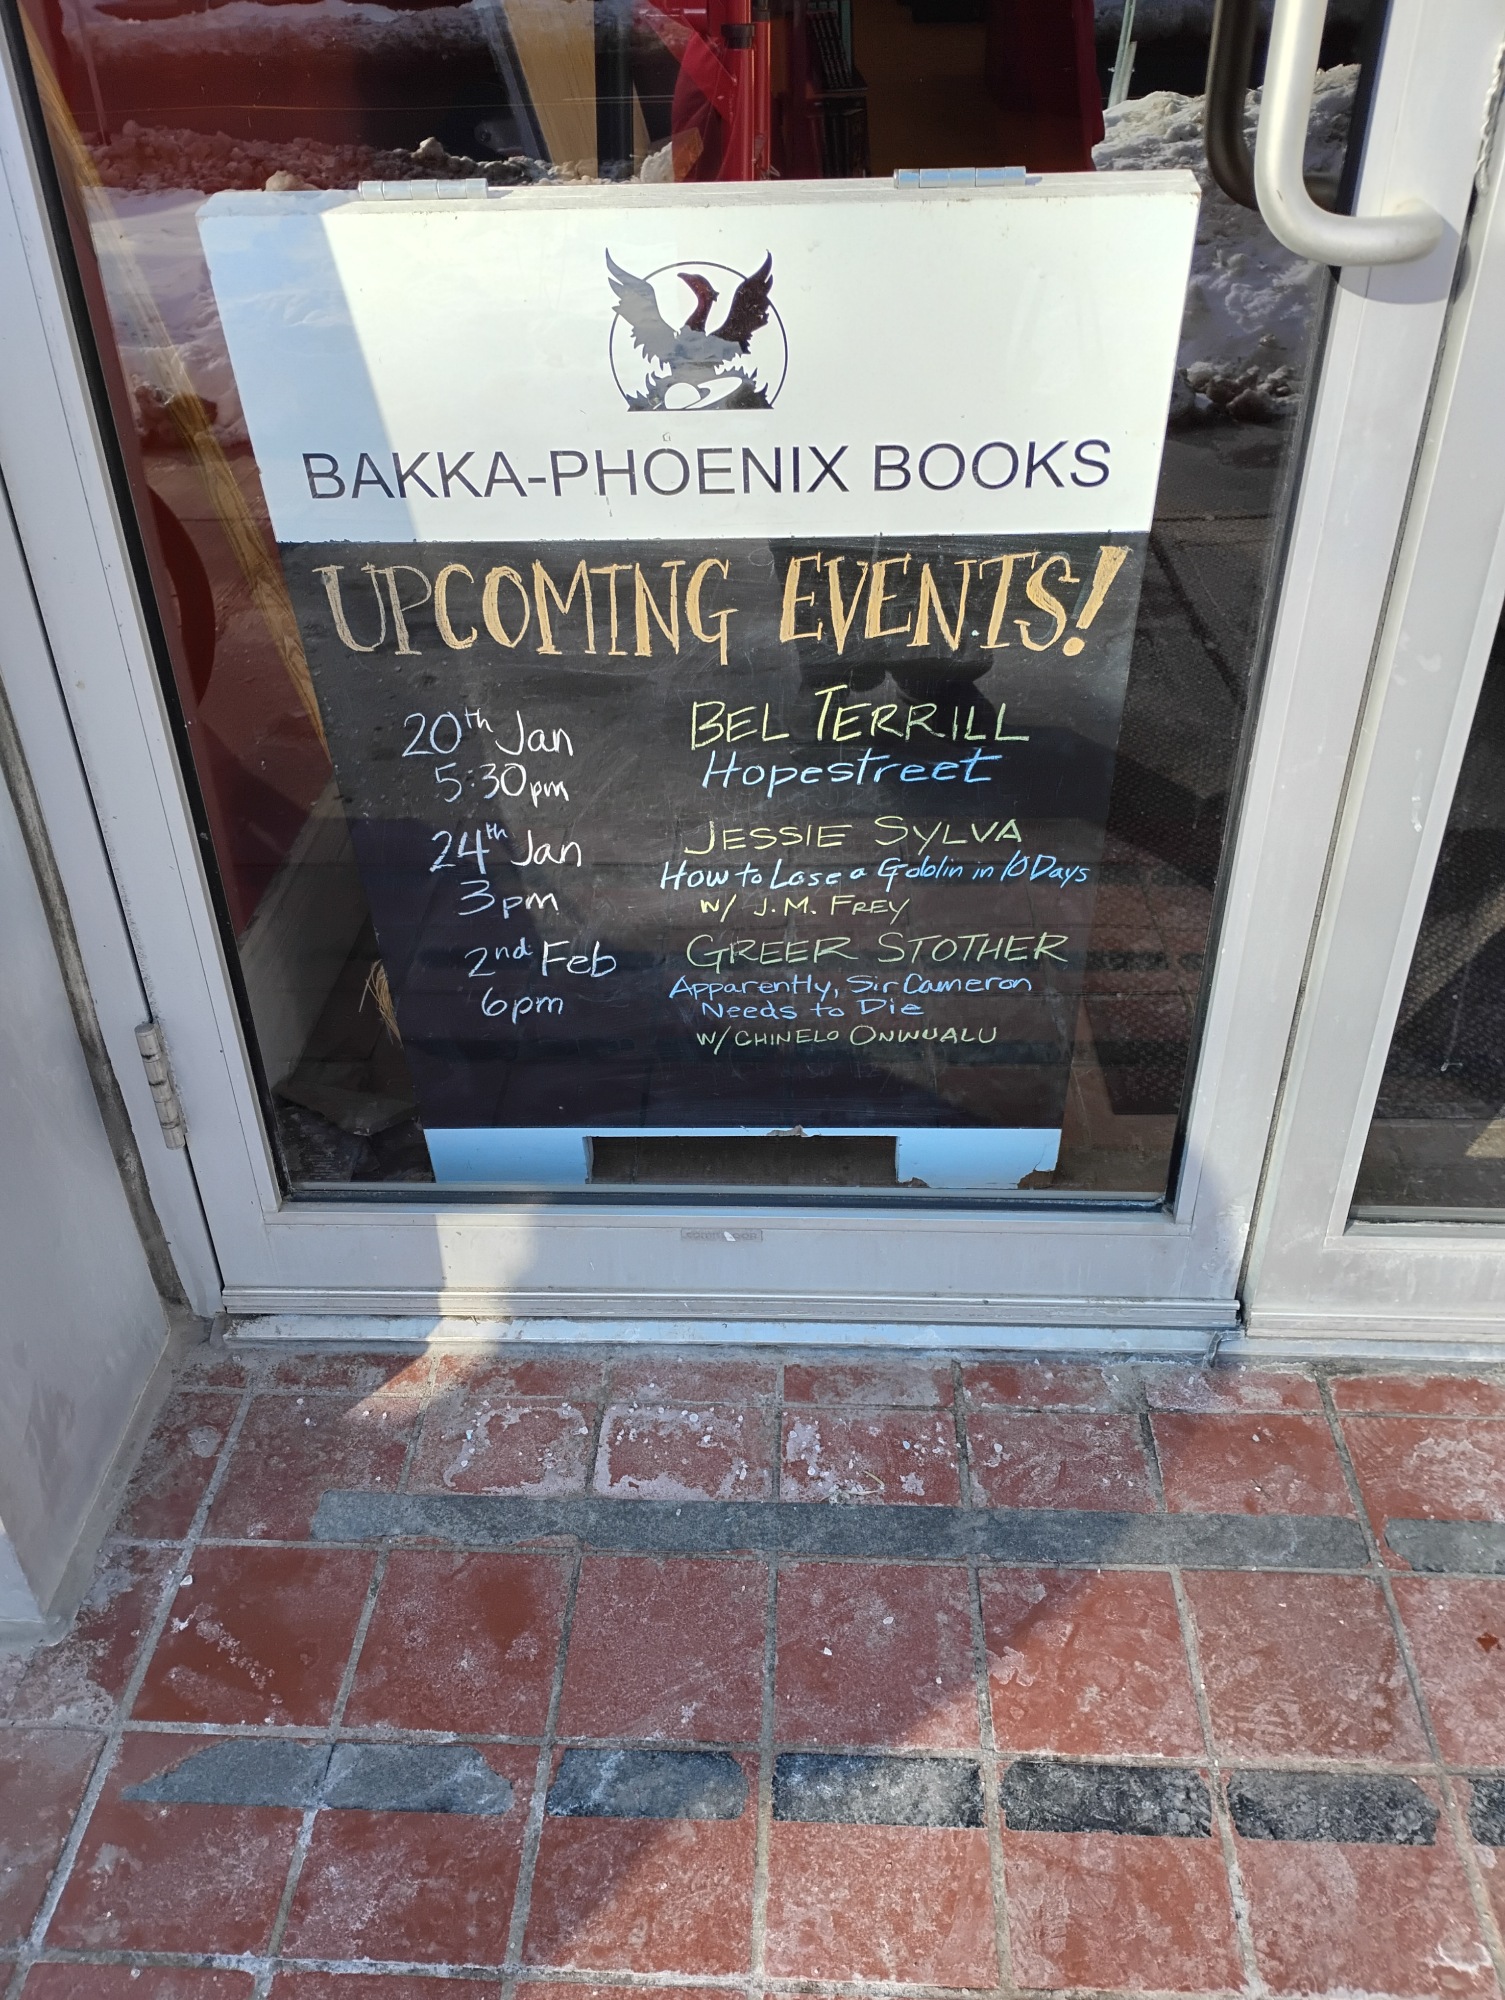 BAKKA-PHOENIX BOOKS
UPCOMING EVENTS!
20th Jan
5:30pm
BEL TERRILL
Hopestreet
24th Jan
3pm
JESSIE SYLVA
How to Lose a Goblin in 10 Days
w/ J.M. FREY
2nd Feb
6pm
GREER STOTHER
Apparently, Sir Cameron
Needs to Die
w/ CHINELO ONWUALU